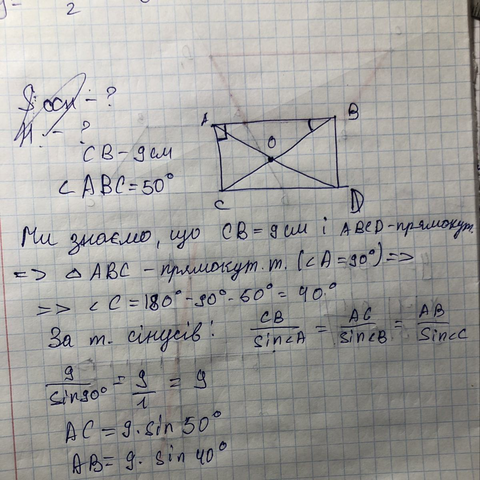 2
Sосн - ?
H - ?
CB - 9 см
∠ABC = 50°
A
B
O
C
D
Ми знаємо, що CB = 9 см і ABCD - прямокут.
=> △ ABC - прямокут. т. (∠A = 90°) =>
=> ∠C = 180° - 90° - 50° = 40°
За т. сінусів: CB/sin∠A = AC/sin∠B = AB/sin∠C
9/sin90° = 9/1 = 9
AC = 9 · sin 50°
AB = 9 · sin 40°